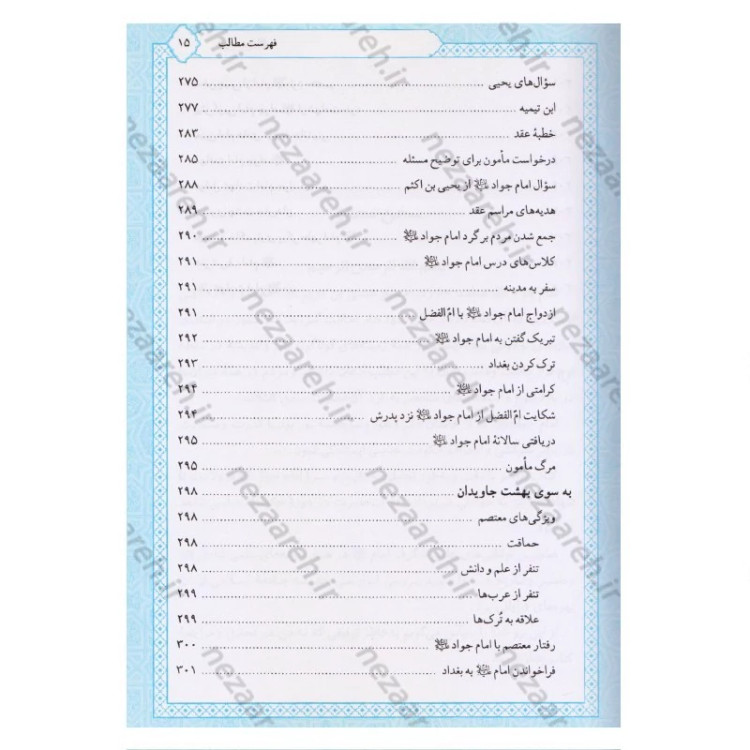 فهرست مطالب ۱۵
سؤال‌های یحیی ........ ۲۷۵
ابن تیمیه ........ ۲۷۷
خطبهٔ عقد ........ ۲۸۳
درخواست مأمون برای توضیح مسئله ........ ۲۸۵
سؤال امام جواد علیه‌السلام از یحیی بن اکثم ........ ۲۸۸
هدیه‌های مراسم عقد ........ ۲۸۹
جمع شدن مردم بر گرد امام جواد علیه‌السلام ........ ۲۹۰
کلاس‌های درس امام جواد علیه‌السلام ........ ۲۹۱
سفر به مدینه ........ ۲۹۱
ازدواج امام جواد علیه‌السلام با امّ الفضل ........ ۲۹۱
تبریک گفتن به امام جواد علیه‌السلام ........ ۲۹۲
ترک کردن بغداد ........ ۲۹۳
کرامتی از امام جواد علیه‌السلام ........ ۲۹۴
شکایت امّ الفضل از امام جواد علیه‌السلام نزد پدرش ........ ۲۹۴
دریافتی سالانهٔ امام جواد علیه‌السلام ........ ۲۹۵
مرگ مأمون ........ ۲۹۵
به سوی بهشت جاویدان ........ ۲۹۸
ویژگی‌های معتصم ........ ۲۹۸
حماقت ........ ۲۹۸
تنفر از علم و دانش ........ ۲۹۸
تنفر از عرب‌ها ........ ۲۹۹
علاقه به تُرک‌ها ........ ۲۹۹
رفتار معتصم با امام جواد علیه‌السلام ........ ۳۰۰
فراخواندن امام علیه‌السلام به بغداد ........ ۳۰۱
nezaareh.ir